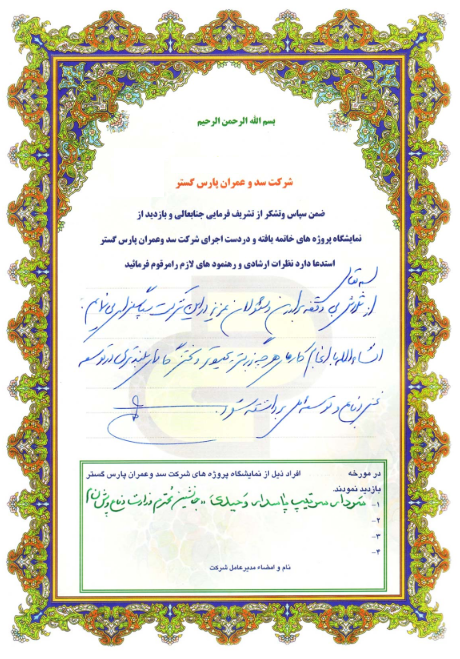 بسم الله الرحمن الرحیم
شرکت سد و عمران پارس گستر
ضمن سپاس وتشکر از تشریف فرمایی جنابعالی و بازدید از
نمایشگاه پروژه های خاتمه یافته و دردست اجرای شرکت سد وعمران پارس گستر
استدعا دارد نظرات ارشادی و رهنمود های لازم رامرقوم فرمائید
بسمه تعالی
از تلاش بی وقفه برادران و مسئولان عزیز در این شرکت سپاسگزاری می نمایم.
انشاءالله با انجام کارهای هر چه با کیفیت تر گامهای بلندتری در توسعه
فنی دفاع و توسعه ملی برداشته شود.
در مورخه افراد ذیل از نمایشگاه پروژه های شرکت سد وعمران پارس گستر
بازدید نمودند.
۱- سردار سرتیپ پاسدار وحیدی ،، جانشین محترم وزارت دفاع و پش ن م
۲-
۳-
۴-
نام و امضاء مدیرعامل شرکت